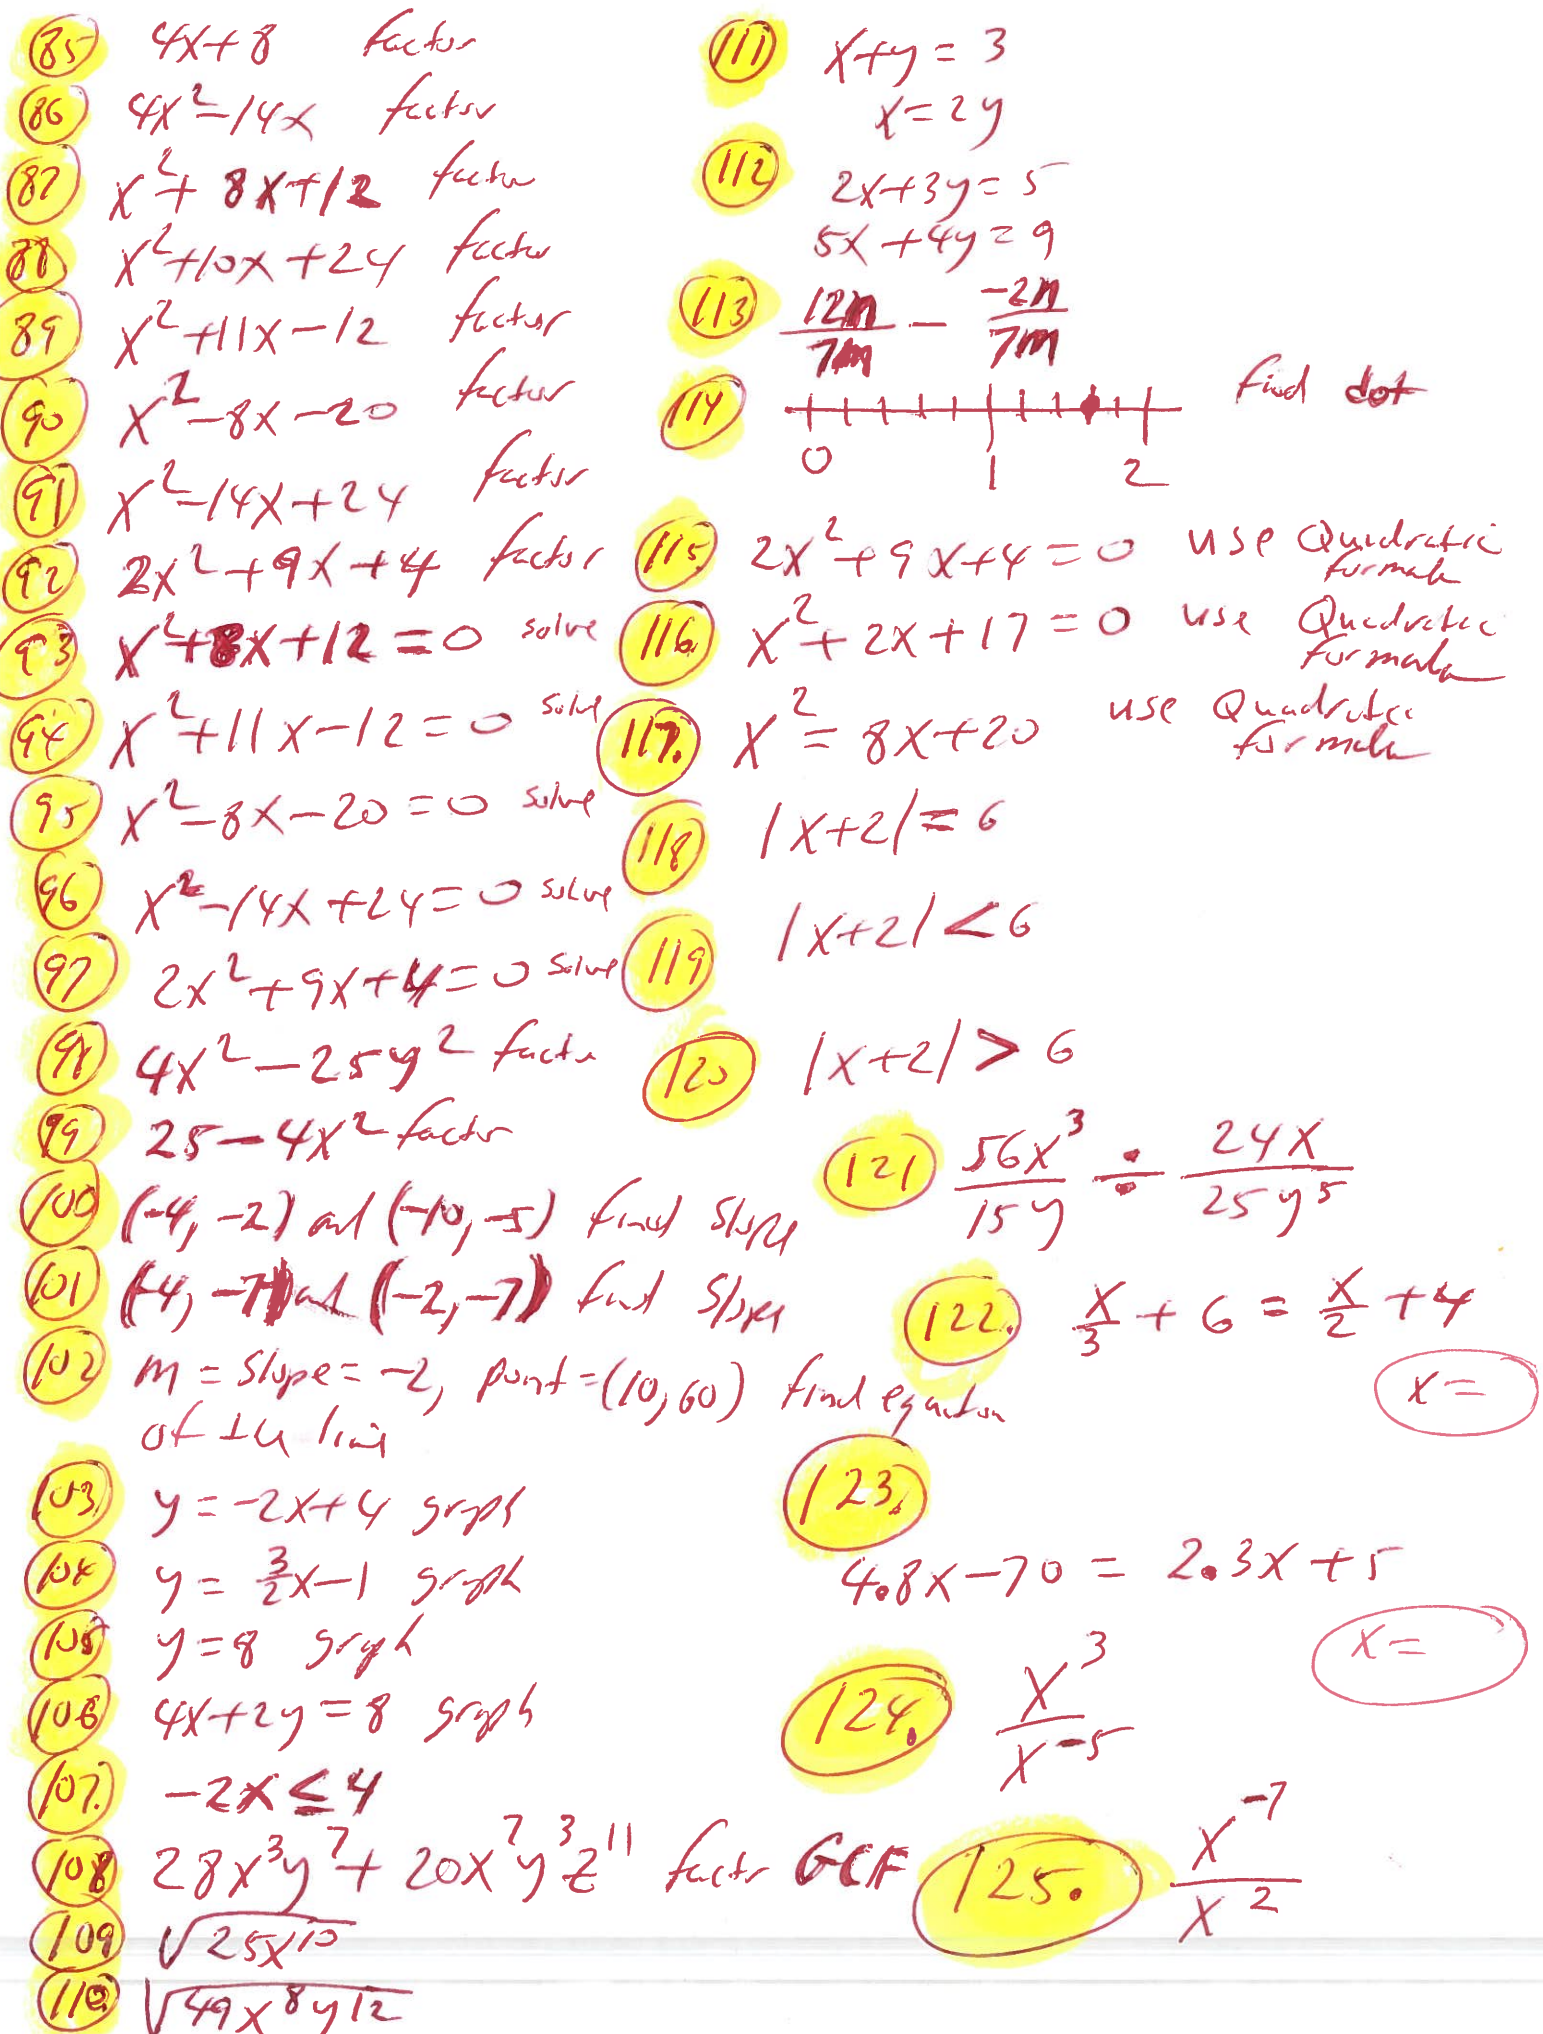 85 4x+8 factor
86 4x²-14x factor
87 x²+8x+12 factor
88 x²+10x+24 factor
89 x²+11x-12 factor
90 x²-8x-20 factor
91 x²-14x+24 factor
92 2x²+9x+4 factor
93 x²+8x+12=0 solve
94 x²+11x-12=0 solve
95 x²-8x-20=0 solve
96 x²-14x+24=0 solve
97 2x²+9x+4=0 solve
98 4x²-25y² factor
99 25-4x² factor
100 (-4,-2) and (-10,-5) find slope
101 (-4,-7) and (-2,-7) find slope
102 m=slope=-2, point=(10,60) find equation
of the line
103 y=-2x+4 graph
104 y=3/2x-1 graph
105 y=8 graph
106 4x+2y=8 graph
107. -2x≤4
108 28x³y⁷+20x⁷y³z¹¹ factor GCF
109 √25x¹⁰
110 √49x⁸y¹²
111 x+y=3
x=2y
112 2x+3y=5
5x+4y=9
113 12n/7m - -2n/7m
114 find dot
0 1 2
115. 2x²+9x+4=0 use Quadratic
formula
116. x²+2x+17=0 use Quadratic
formula
117. x²=8x+20 use Quadratic
formula
118 |x+2|=6
119 |x+2|<6
120 |x+2|>6
121 56x³/15y ÷ 24x/25y⁵
122. x/3+6=x/2+4
x=
123.
4.8x-70=2.3x+5
x=
124. x³/x⁻⁵
125. x⁻⁷/x²